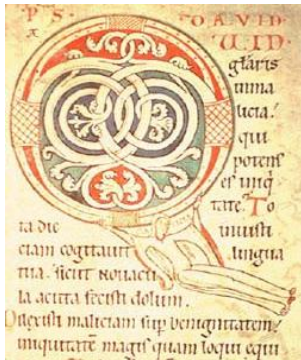 PS DAVID
Q UID
glaris
inma
licia?
qui
potens
es iniq
tate. To
ta die iniusti
ciam cogitauit lingua
tua. sicut nouacu
la acuta fecisti dolum.
Dilexisti maliciam sup benignitatem
iniquitatē magis quam loqui equi